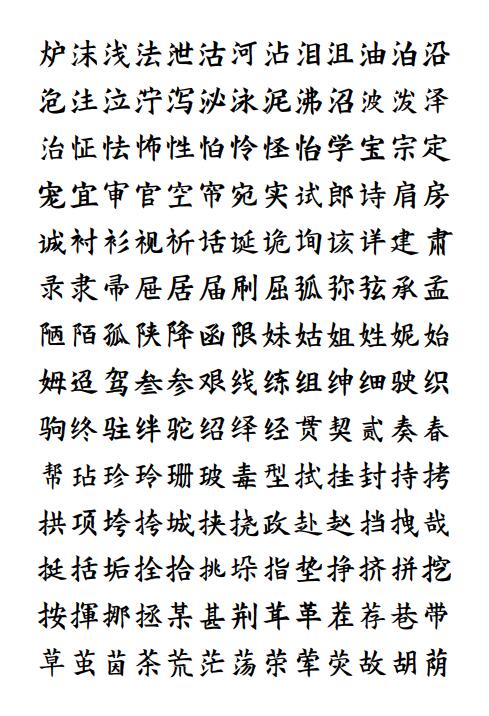 炉沫浅法泄沽河沾泪沮油泊沿
泡注泣泞泻泌泳泥沸沼波泼泽
治怔怯怖性怕怜怪怡学宝宗定
宠宜审官空帘宛实试郎诗肩房
诚衬衫视祈话诞诡询该详建肃
录隶帚屉居届刷屈弧弥弦承孟
陋陌孤陕降函限妹姑姐姓妮始
姆迢驾叁参艰线练组绅细驶织
驹终驻绊驼绍绎经贯契贰奏春
帮玷珍玲珊玻毒型拭挂封持拷
拱项垮挎城挟挠政赴赵挡拽哉
挺括垢拴拾挑垛指垫挣挤拼挖
按揮挪拯某甚荆茸革茬荐巷带
草茧茵茶荒茫荡荣荤荧故胡荫